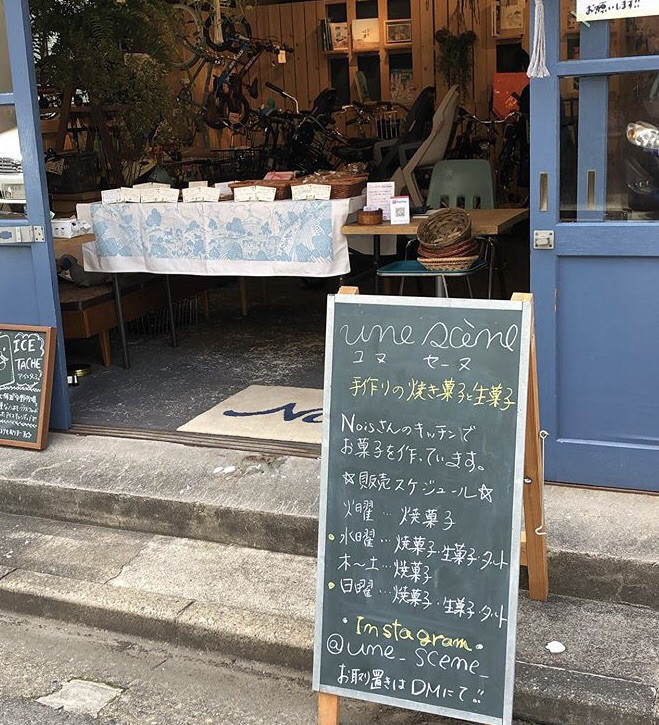 お願いします!!
ICE
TACHE
une scène
ユヌ セーヌ
手作りの焼き菓子と生菓子
Noisさんのキッチンで
お菓子を作っています。
☆販売スケジュール☆
火曜…焼菓子
水曜…焼菓子・生菓子・タルト
木〜土…焼菓子
日曜…焼菓子・生菓子・タルト
・Instagram・
@une_scene_
お取り置きはDMにて!!
No